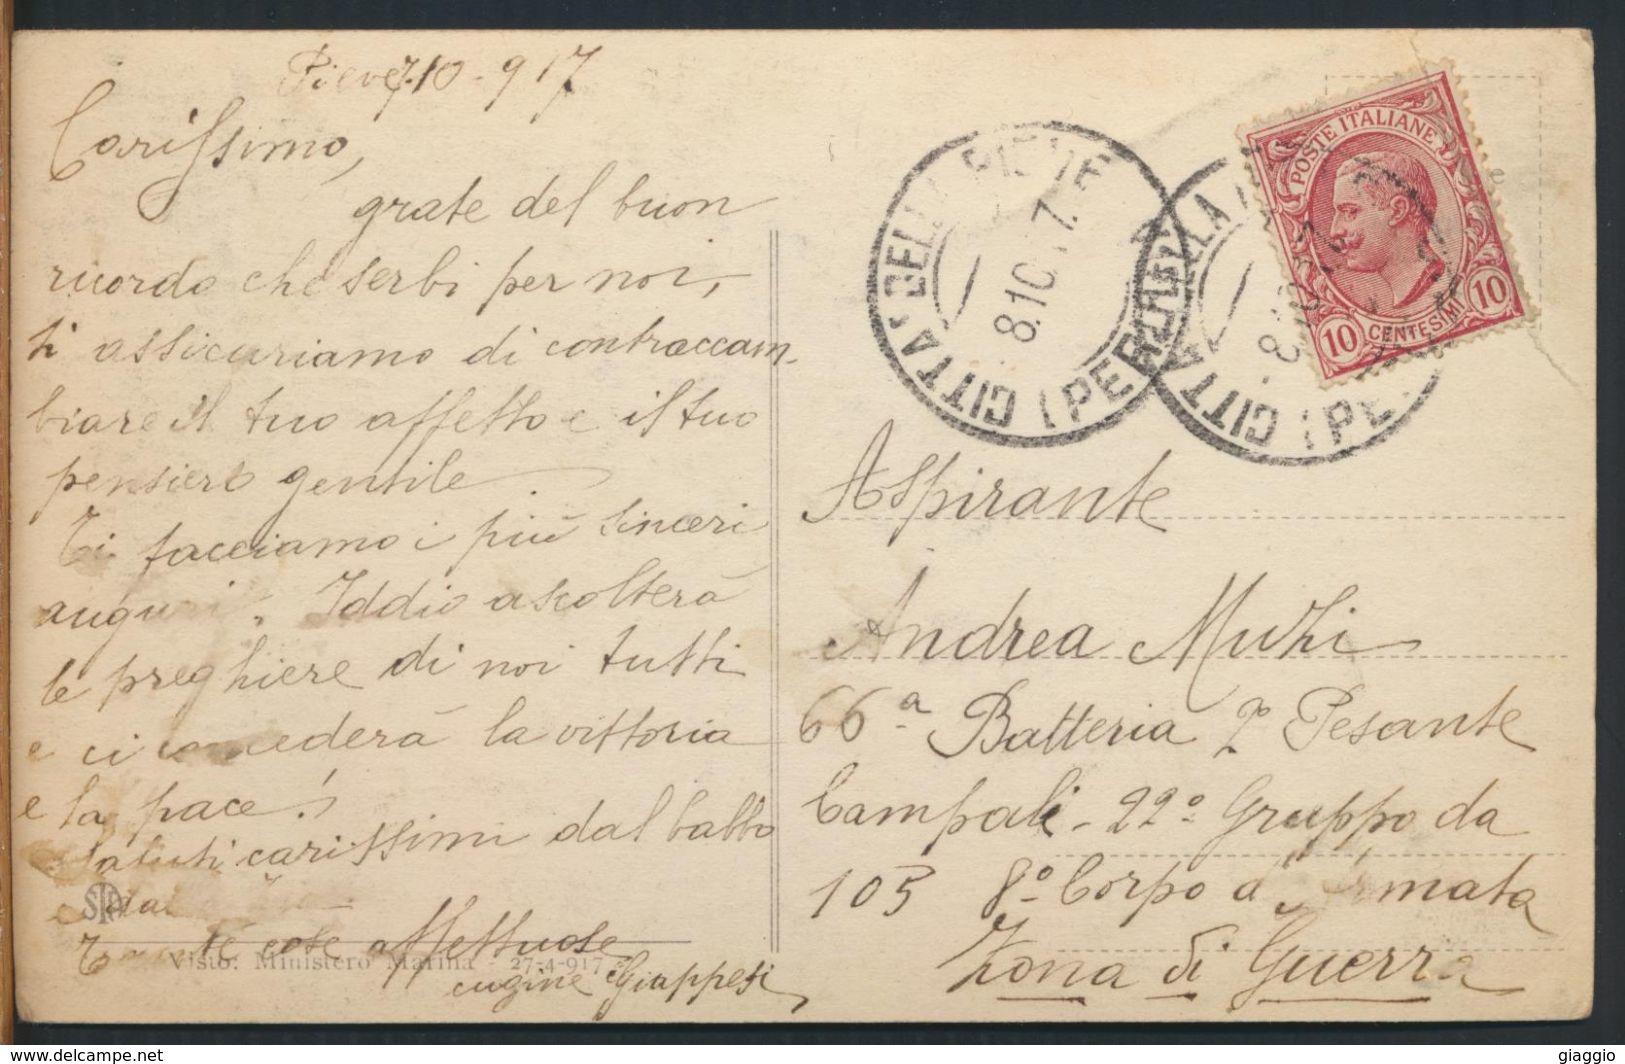 Pieve 7.10-917
Carissimo,
grate del buon
ricordo che serbi per noi,
ti assicuriamo di contraccam-
biare il tuo affetto e il tuo
pensiero gentile.
Ti facciamo i più sinceri
auguri. Iddio ascolterà
le preghiere di noi tutti
e ci concederà la vittoria
e la pace!
Saluti carissimi dal babbo
e dal
cose affettuose
cugine Giappesi
Visto: Ministero Marina - 27-4-917
CITTA' DELLA PIEVE (PERUGIA)
8.10.17.
CITTA' DELLA
(PE
POSTE ITALIANE
10 CENTESIMI 10
Aspirante
Andrea Muzi
66ª Batteria Pesante
Campale - 22º Gruppo da
105 8º Corpo d'Armata
Zona di Guerra
delcampe.net
giaggio